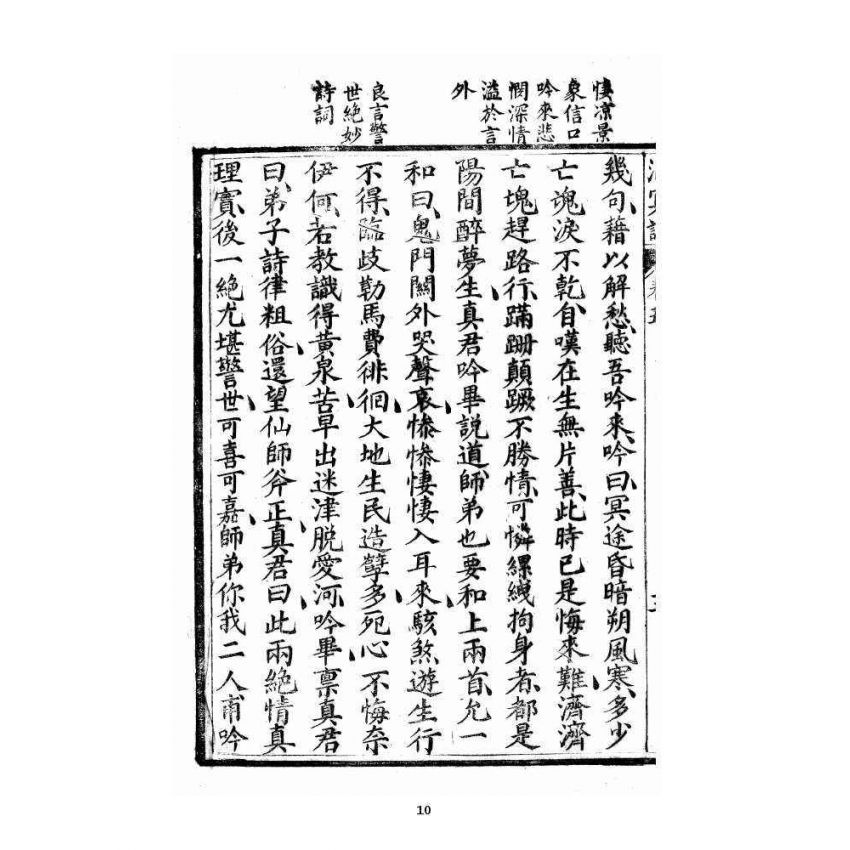 悽凉景
象信口
吟來悲
憫深情
溢於言
外
良言警
世絶妙
詩詞
幾句藉以解愁聽吾吟來吟曰冥途昏暗朔風寒多少
亡魂淚不乾自嘆在生無片善此時已是悔來難濟濟
亡塊趕路行蹣跚顛蹶不勝情可憐縲絏拘身者都是
陽間醉夢生真君吟畢說道師弟也要和上兩首允一
和曰鬼門關外哭聲哀慘慘悽悽入耳來駭煞遊生行
不得臨歧勒馬費徘徊大地生民造孽多死心不悔奈
伊何若教識得黃泉苦早出迷津脱愛河吟畢禀真君
曰弟子詩律粗俗還望仙師斧正真君曰此兩絶情真
理實後一絶尤堪警世可喜可嘉師弟你我二人甫吟
10